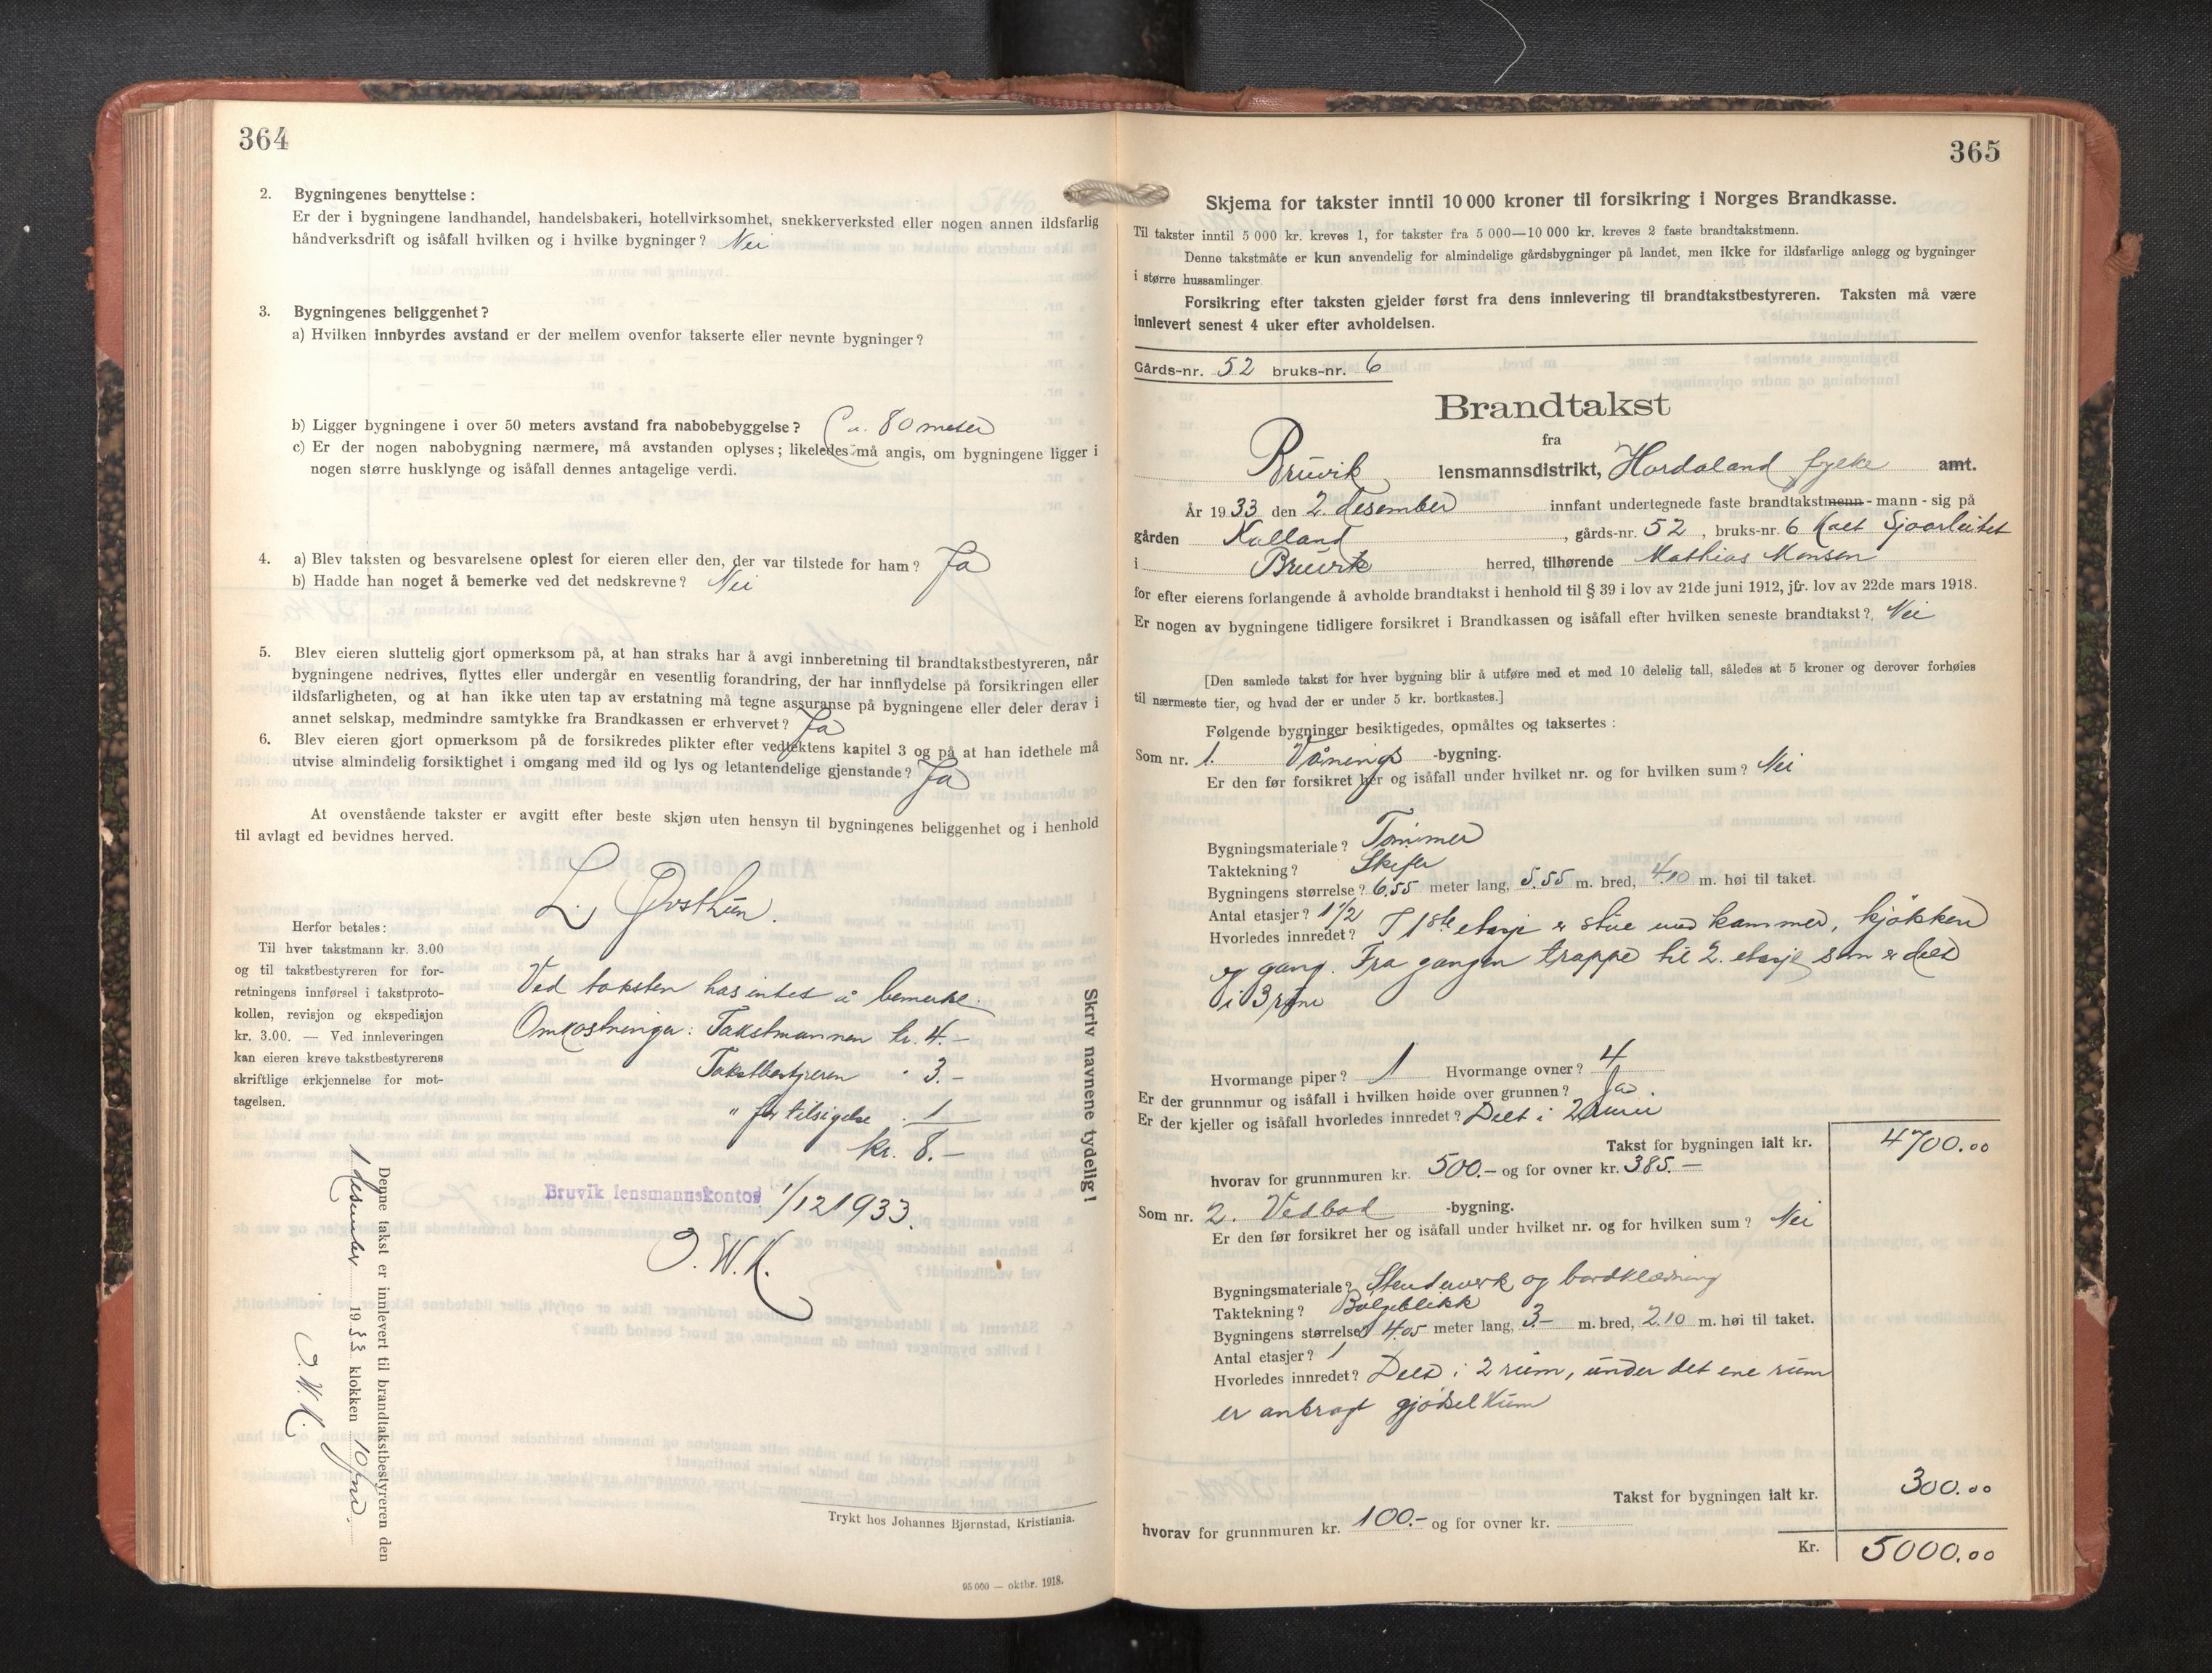 364
2. Bygningenes benyttelse:
Er der i bygningene landhandel, handelsbakeri, hotellvirksomhet, snekkerverksted eller nogen annen ildsfarlig
håndverksdrift og isåfall hvilken og i hvilke bygninger? Nei
3. Bygningenes beliggenhet?
a) Hvilken innbyrdes avstand er der mellem ovenfor takserte eller nevnte bygninger?
b) Ligger bygningene i over 50 meters avstand fra nabobebyggelse? Ca. 80 meter
c) Er der nogen nabobygning nærmere, må avstanden oplyses; likeledes må angis, om bygningene ligger i
nogen større husklynge og isåfall dennes antagelige verdi.
4. a) Blev taksten og besvarelsene oplest for eieren eller den, der var tilstede for ham? Ja
b) Hadde han noget å bemerke ved det nedskrevne? Nei
5. Blev eieren sluttelig gjort opmerksom på, at han straks har å avgi innberetning til brandtakstbestyreren, når
bygningene nedrives, flyttes eller undergår en vesentlig forandring, der har innflydelse på forsikringen eller
ildsfarligheten, og at han ikke uten tap av erstatning må tegne assuranse på bygningene eller deler derav i
annet selskap, medmindre samtykke fra Brandkassen er erhvervet? Ja
6. Blev eieren gjort opmerksom på de forsikredes plikter efter vedtektens kapitel 3 og på at han idethele må
utvise almindelig forsiktighet i omgang med ild og lys og letantendelige gjenstande? Ja
At ovenstående takster er avgitt efter beste skjøn uten hensyn til bygningenes beliggenhet og i henhold
til avlagt ed bevidnes herved.
L.
Herfor betales:
Til hver takstmann kr. 3.00
og til takstbestyreren for for-
retningens innførsel i takstproto-
kollen, revisjon og ekspedisjon
kr. 3.00. — Ved innleveringen
kan eieren kreve takstbestyrerens
skriftlige erkjennelse for mot-
tagelsen.
Ved taksten has intet å bemerke.
Omkostninger: Takstmannen kr. 4.-
Takstbestyreren " 3.-
" for tilsigelse " 1
kr. 8.-
Bruvik lensmannskontor 1/12 1933.
O. W. K.
Skriv navnene tydelig!
Denne takst er innlevert til brandtakstbestyreren den
1 desember 1933 klokken 10 fmd.
O. W. K.
Trykt hos Johannes Bjørnstad, Kristiania.
95 000 — oktbr. 1918.
365
Skjema for takster inntil 10 000 kroner til forsikring i Norges Brandkasse.
Til takster inntil 5 000 kr. kreves 1, for takster fra 5 000—10 000 kr. kreves 2 faste brandtakstmenn.
Denne takstmåte er kun anvendelig for almindelige gårdsbygninger på landet, men ikke for ildsfarlige anlegg og bygninger
i større hussamlinger.
Forsikring efter taksten gjelder først fra dens innlevering til brandtakstbestyreren. Taksten må være
innlevert senest 4 uker efter avholdelsen.
Gårds-nr. 52 bruks-nr. 6
Brandtakst
fra
Bruvik lensmannsdistrikt, Hordaland fylke amt.
År 1933 den 2. desember innfant undertegnede faste brandtakstmenn - mann - sig på
gården Kalland, gårds-nr. 52, bruks-nr. 6 kalt Sjoarleitet
i Bruvik herred, tilhørende Mathias Monsen
for efter eierens forlangende å avholde brandtakst i henhold til § 39 i lov av 21de juni 1912, jfr. lov av 22de mars 1918.
Er nogen av bygningene tidligere forsikret i Brandkassen og isåfall efter hvilken seneste brandtakst? Nei
[Den samlede takst for hver bygning blir å utføre med et med 10 delelig tall, således at 5 kroner og derover forhøies
til nærmeste tier, og hvad der er under 5 kr. bortkastes.]
Følgende bygninger besiktigedes, opmåltes og taksertes:
Som nr. 1. Vånings -bygning.
Er den før forsikret her og isåfall under hvilket nr. og for hvilken sum? Nei
Bygningsmateriale? Tømmer
Taktekning? Skifer
Bygningens størrelse? 6.55 meter lang, 5.55 m. bred, 4.10 m. høi til taket.
Antal etasjer? 1 1/2
Hvorledes innredet? I 1ste etasje er stue med kammer, kjøkken
og gang. Fra gangen trappe til 2. etasje som er delt
i 3 rum
Hvormange piper? 1 Hvormange ovner? 4
Er der grunnmur og isåfall i hvilken høide over grunnen? Ja.
Er der kjeller og isåfall hvorledes innredet? Delt i 2 rum
Takst for bygningen ialt kr. 4700.00
hvorav for grunnmuren kr. 500.- og for ovner kr. 385.-
Som nr. 2. Vedbod -bygning.
Er den før forsikret her og isåfall under hvilket nr. og for hvilken sum? Nei
Bygningsmateriale? Stenderverk og bordklædning
Taktekning? Bølgeblikk
Bygningens størrelse? 4.05 meter lang, 3.- m. bred, 2.10 m. høi til taket.
Antal etasjer? 1
Hvorledes innredet? Delt i 2 rum, under det ene rum
er anbragt gjødselkum
Takst for bygningen ialt kr. 300.00
hvorav for grunnmuren kr. 100.- og for ovner kr.
Kr. 5000.00